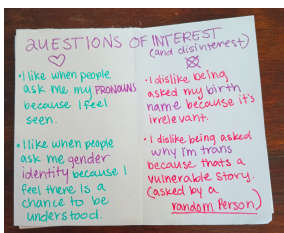 QUESTIONS OF INTEREST
(and disinterest)
• I like when people
ask me my PRONOUNS
because I feel
seen.
• I like when people
ask me gender
identity because I
feel there is a
chance to be
understood.
• I dislike being
asked my birth
name because it's
irrelevant.
• I dislike being asked
why I'm trans
because thats a
vulnerable story.
(asked by a
random Person)